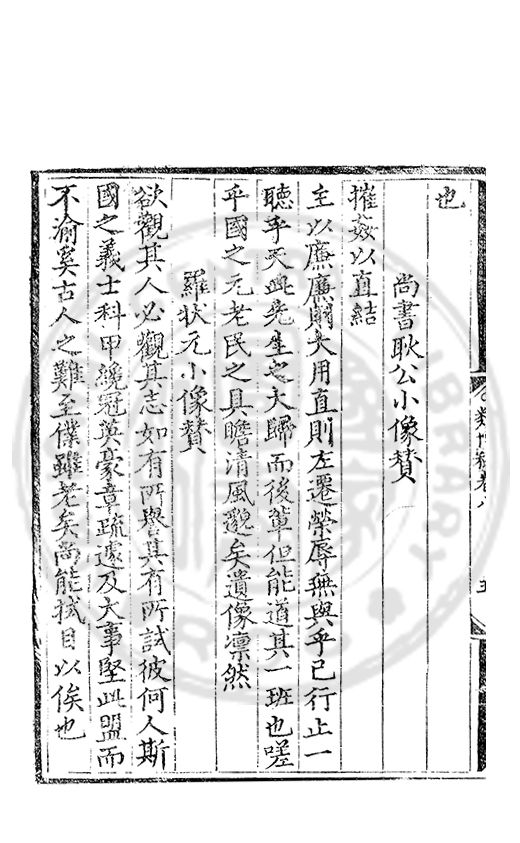 也
尚書耿公小像贊
摧姦以直結
主以廉廉爾大用直則左遷榮辱無與乎己行止一
聽乎天此先生之大歸而後輩但能道其一班也嗟
乎國之元老民之具瞻清風邈矣遺像凛然
羅狀元小像贊
欲觀其人必觀其志如有所譽其有所試彼何人斯
國之義士科甲纔冠英豪章疏遽及大事堅此盟而
不渝奚古人之難至僕雖老矣尚能拭目以俟也
類博稿卷八
五